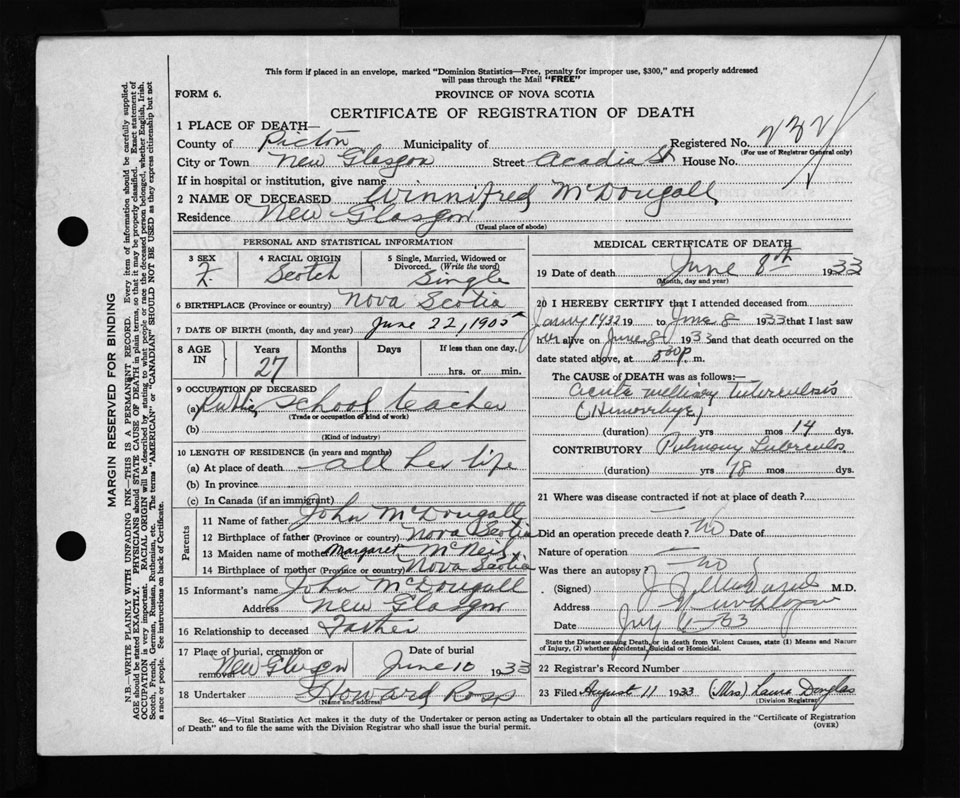 This form if placed in an envelope, marked "Dominion Statistics—Free, penalty for improper use, $300," and properly addressed
will pass through the Mail "FREE"
FORM 6.
PROVINCE OF NOVA SCOTIA
CERTIFICATE OF REGISTRATION OF DEATH
1 PLACE OF DEATH—
County of Pictou Municipality of Registered No. 232
(For use of Registrar General only)
City or Town New Glasgow Street Acadia St House No.
If in hospital or institution, give name
2 NAME OF DECEASED Winnifred McDougall
Residence New Glasgow
(Usual place of abode)
PERSONAL AND STATISTICAL INFORMATION
3 SEX F
4 RACIAL ORIGIN Scotch
5 Single, Married, Widowed or Divorced. (Write the word) Single
6 BIRTHPLACE (Province or country) Nova Scotia
7 DATE OF BIRTH (month, day and year) June 22, 1905
8 AGE IN Years 27 Months Days If less than one day. hrs. or min.
9 OCCUPATION OF DECEASED
(a) Public School teacher
(Trade or occupation of kind of work)
(b)
(Kind of industry)
10 LENGTH OF RESIDENCE (in years and months)
(a) At place of death all her life
(b) In province
(c) In Canada (if an immigrant)
Parents
11 Name of father John McDougall
12 Birthplace of father (Province or country) Nova Scotia
13 Maiden name of mother Margaret McNeil
14 Birthplace of mother (Province or country) Nova Scotia
15 Informant's name John McDougall
Address New Glasgow
16 Relationship to deceased Father
17 Place of burial, cremation or removal New Glasgow Date of burial June 10 1933
18 Undertaker Howard Ross
(Name and address)
MEDICAL CERTIFICATE OF DEATH
19 Date of death June 8th 1933
(Month, day and year)
20 I HEREBY CERTIFY that I attended deceased from
19 to June 8 1933 that I last saw
her alive on June 8 1933 and that death occurred on the
date stated above, at 500p m.
The CAUSE of DEATH was as follows:—
Acute milliary tuberculosis
(duration) yrs mos 14 dys.
CONTRIBUTORY Pulmonary Tuberculosis
(duration) yrs 18 mos dys.
21 Where was disease contracted if not at place of death?
Did an operation precede death? No Date of
Nature of operation —
Was there an autopsy? no
(Signed) M.D.
Address
Date
State the Disease causing Death, or in death from Violent Causes, state (1) Means and Nature
of Injury, (2) whether Accidental, Suicidal or Homicidal.
22 Registrar's Record Number
23 Filed August 11 1933 (Mrs) Laura Douglas
(Division Registrar)
Sec. 46—Vital Statistics Act makes it the duty of the Undertaker or person acting as Undertaker to obtain all the particulars required in the "Certificate of Registration
of Death" and to file the same with the Division Registrar who shall issue the burial permit.
(OVER)
MARGIN RESERVED FOR BINDING
N.B.—WRITE PLAINLY WITH UNFADING INK—THIS IS A PERMANENT RECORD. Every item of information should be carefully supplied.
AGE should be stated EXACTLY. PHYSICIANS should STATE CAUSE OF DEATH in plain terms, so that it may be properly classified. Exact statement of
OCCUPATION is very important. RACIAL ORIGIN will be described by stating to what people or race the deceased person belonged, whether English, Irish,
Scotch, French, German, Russian, Ruthenian, etc. The terms "AMERICAN" or "CANADIAN" SHOULD NOT BE USED as they express citizenship but not
a race or people. See instructions on back of Certificate.